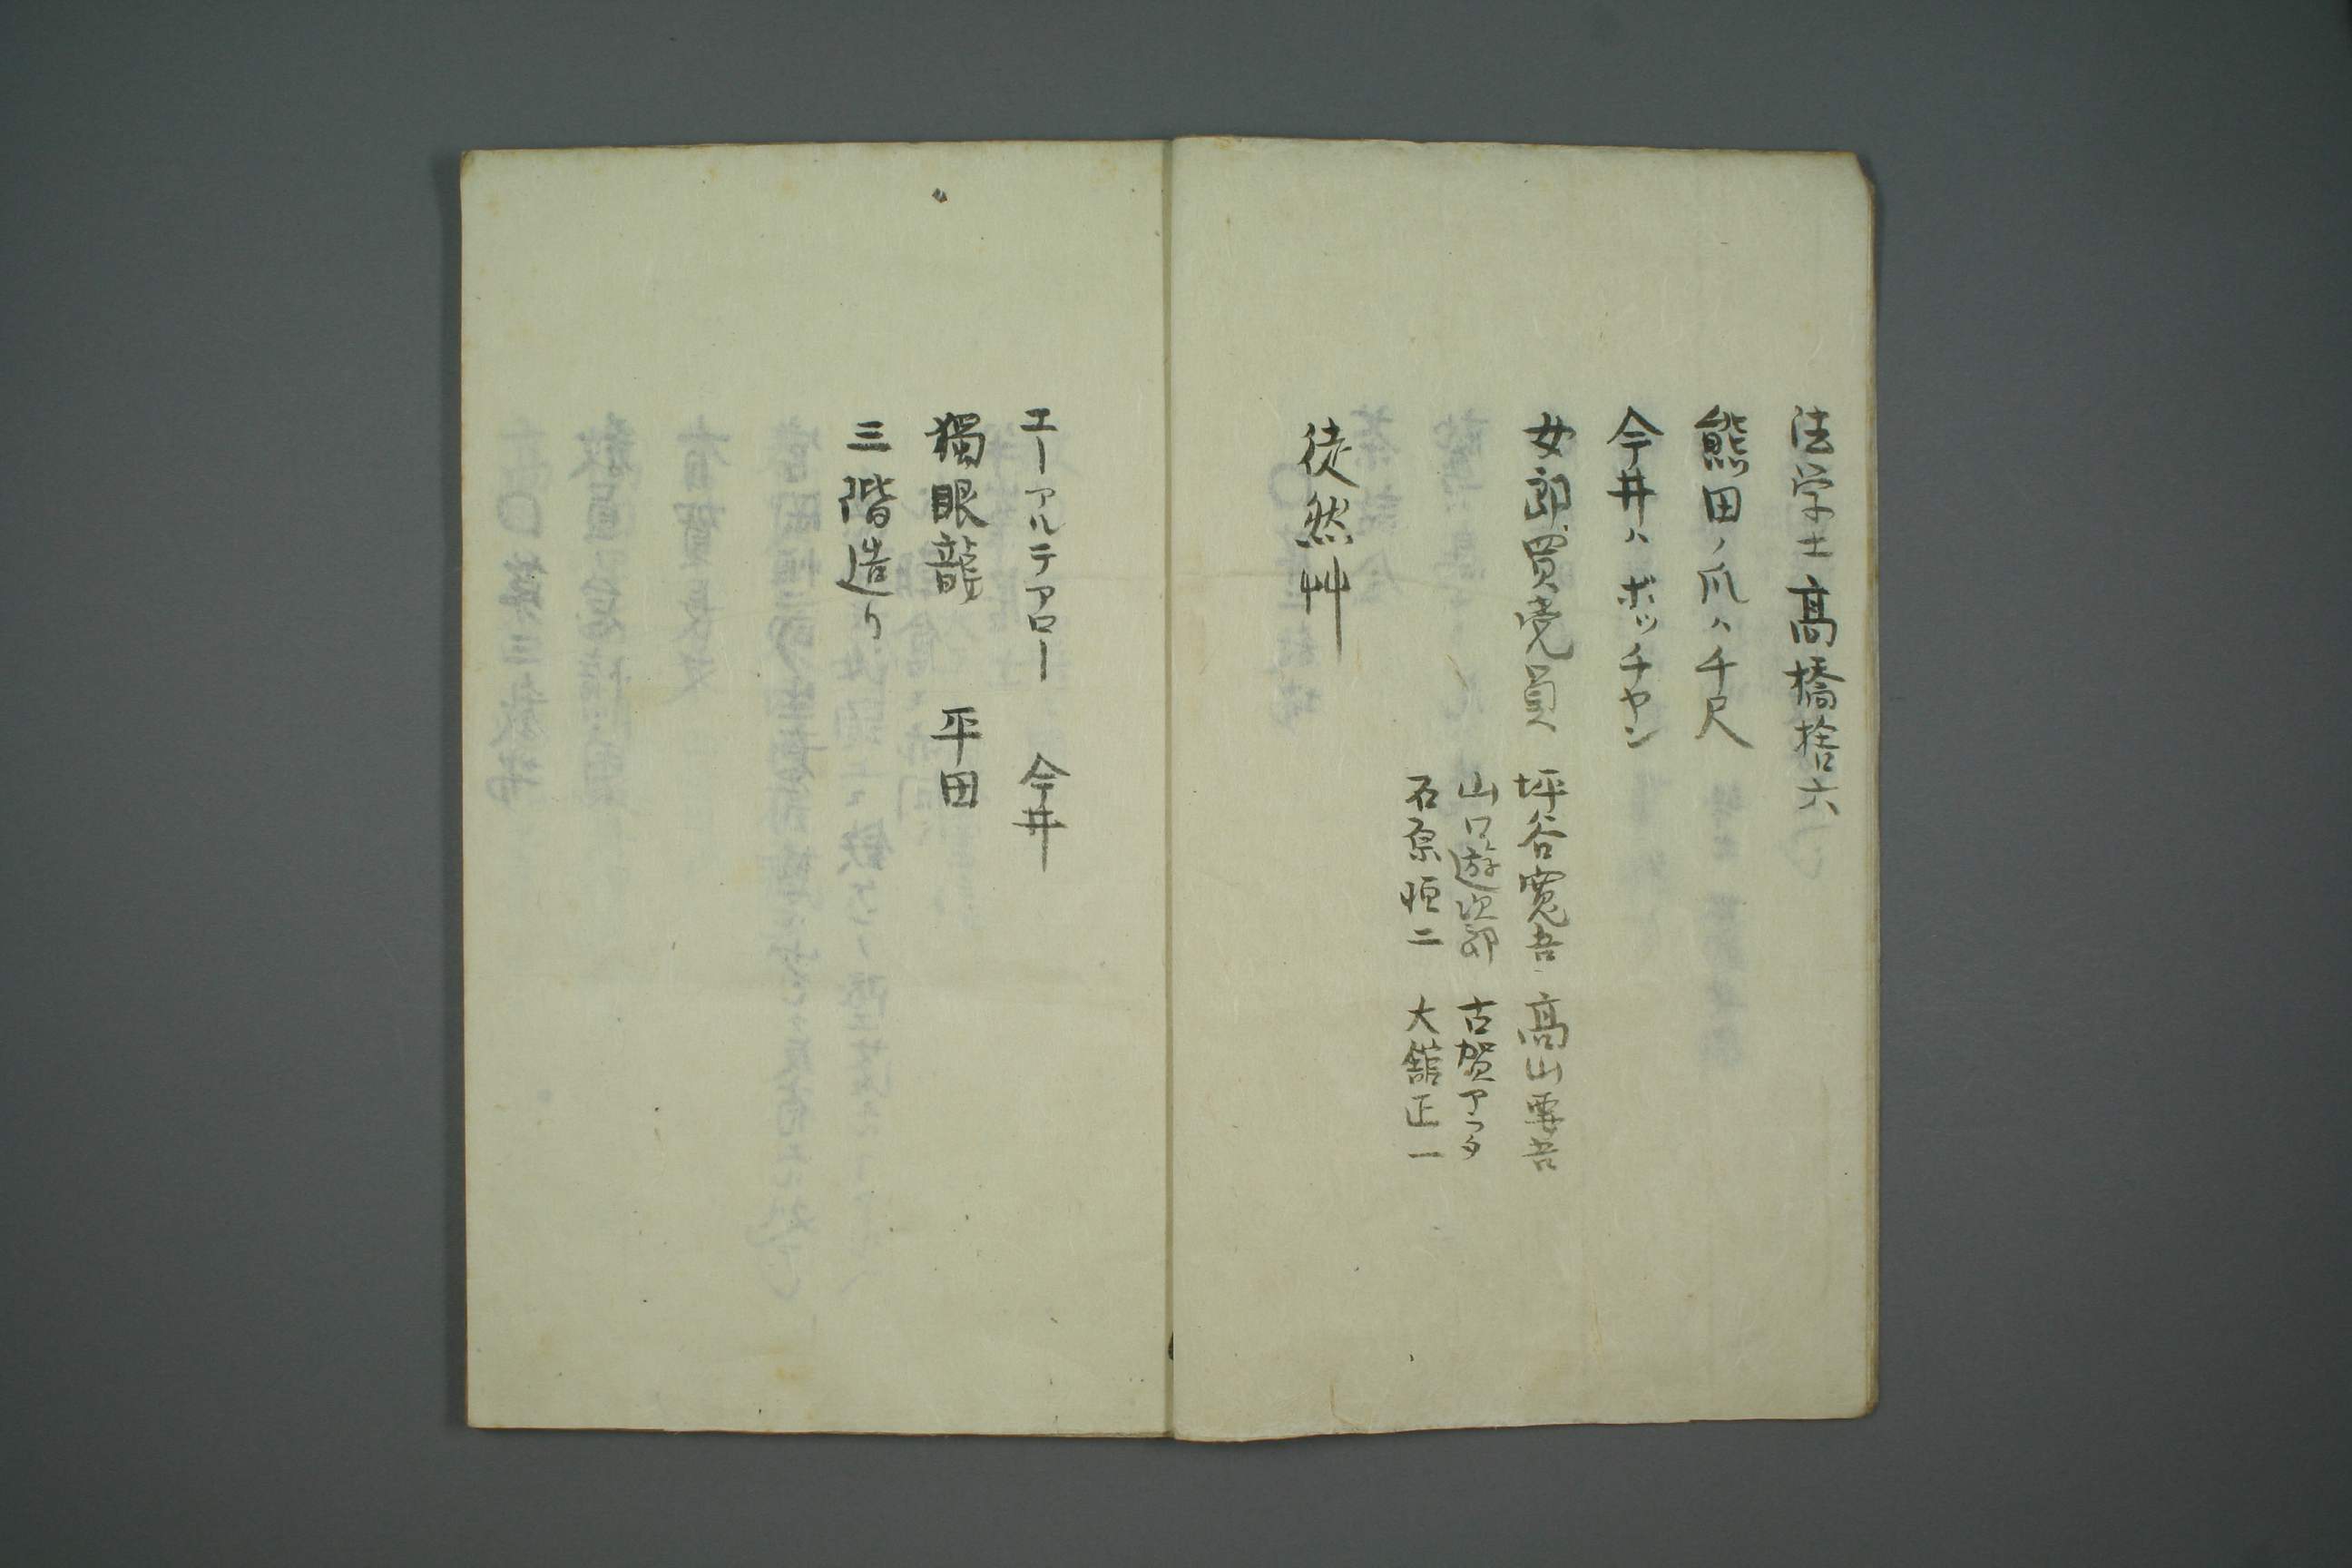 法学士高橋捨六
熊田ノ爪ハ千尺
今井ハボッチヤン
女郎買党員 坪谷寛吾 高山要吉
山口遊次郎 古賀アラタ
石原恒二 大舘正一
徒然艸
エーアルテアロー 今井
獨眼龍 平田
三階造り